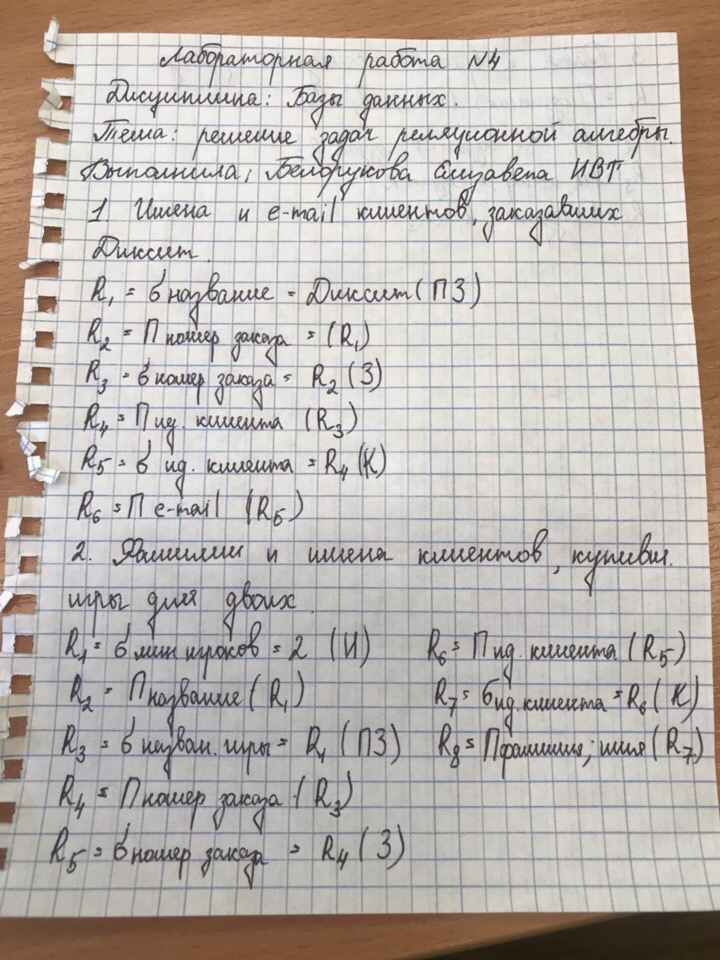 Лабораторная работа №4
Дисциплина: Базы данных.
Тема: решение задач реляционной алгебры.
Выполнила: Белорукова Елизавета ИВТ
1 Имена и e-mail клиентов, заказавших
Диксит.
R₁ = σ название = Диксит (ПЗ)
R₂ = П номер заказа = (R₁)
R₃ = σ номер заказа = R₂ (З)
R₄ = П ид. клиента (R₃)
R₅ = σ ид. клиента = R₄ (К)
R₆ = П e-mail (R₅)
2. Фамилии и имена клиентов, купивш.
игры для двоих.
R₁ = σ мин игроков = 2 (И)
R₂ = П название (R₁)
R₃ = σ назван. игры = R₁ (ПЗ)
R₄ = П номер заказа (R₃)
R₅ = σ номер заказа = R₄ (З)
R₆ = П ид. клиента (R₅)
R₇ = σ ид. клиента = R₆ (К)
R₈ = П фамилия; имя (R₇)